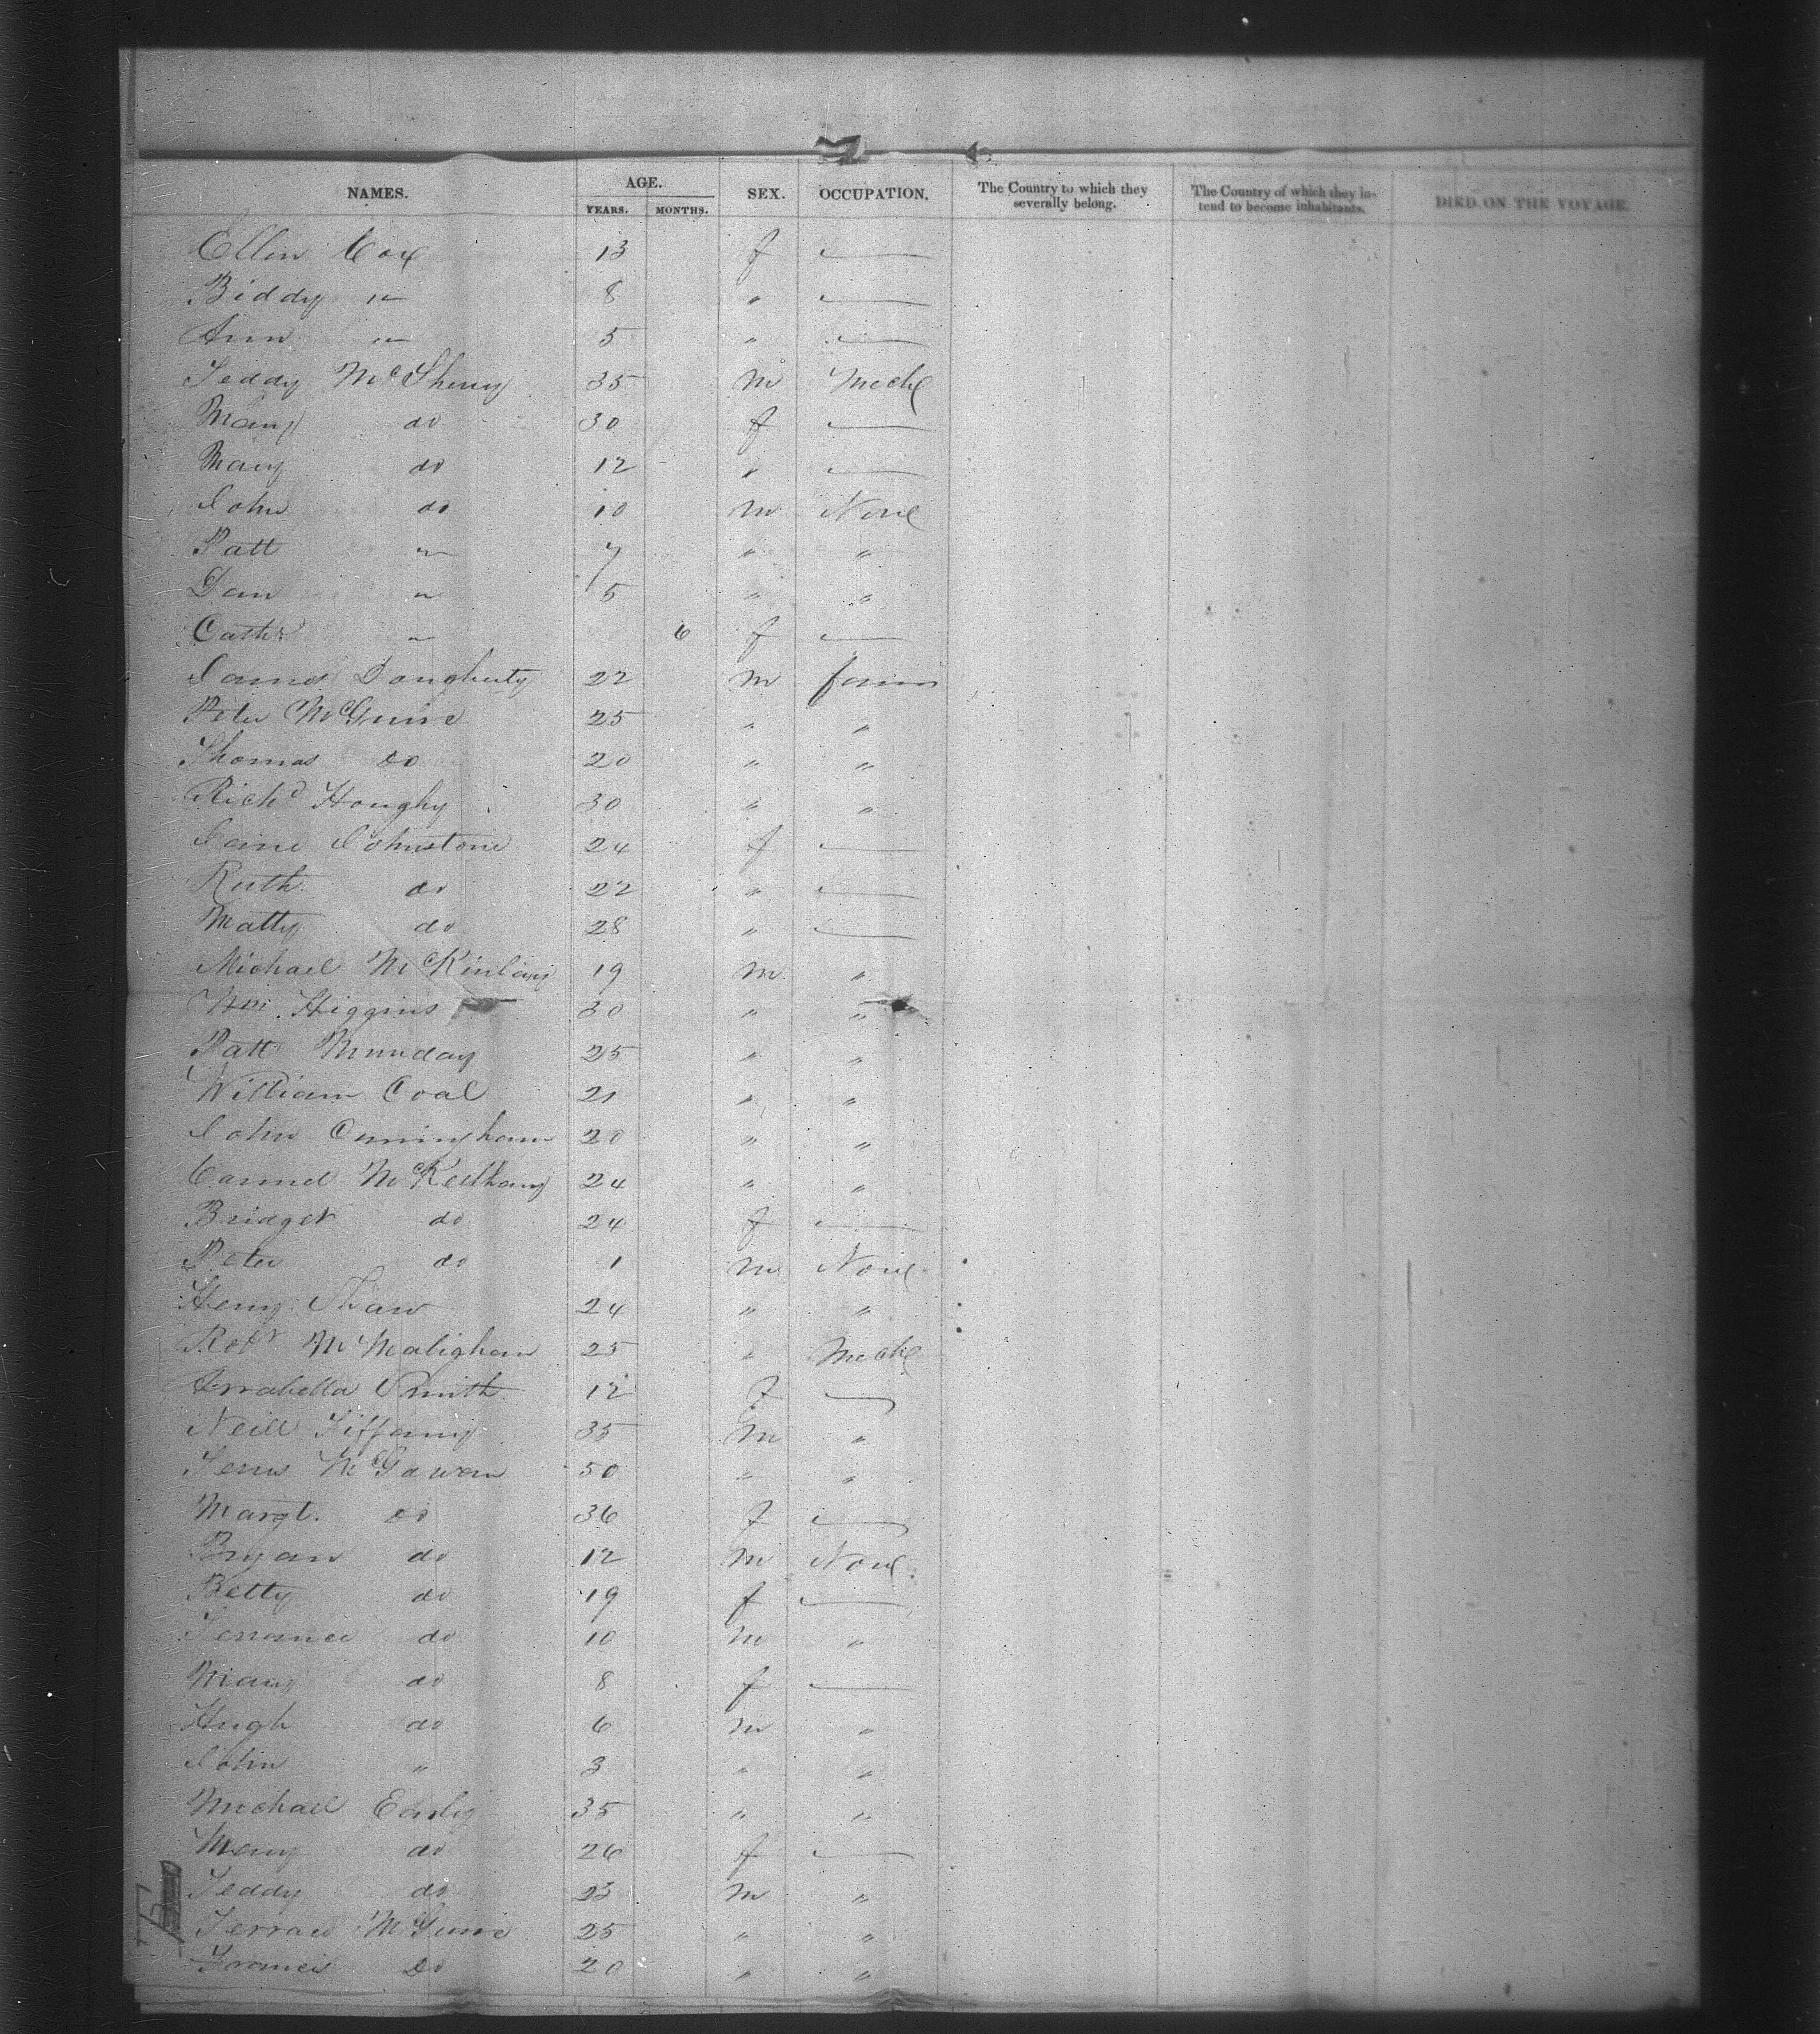 NAMES. AGE. SEX. OCCUPATION. The Country to which they severally belong. The Country of which they intend to become inhabitants. DIED ON THE VOYAGE.
YEARS. MONTHS.
Ellen Cox 13 f —
Biddy " 8 " —
Ann " 5 " —
Teddy McSherry 35 m Mech
Mary do 30 f —
Mary do 12 " —
John do 10 m None
Patt " 7 " "
Dan " 5 " "
Cathr " 6 f —
James Dougherty 22 m farm
Peter McGuire 25 " "
Thomas do 20 " "
Richd Houghy 30 " "
Jane Johnstone 24 f —
Ruth do 22 " —
Matty do 28 " —
Michael McKinlay 19 m "
Wm. Higgins 30 " "
Patt Munday 25 " "
William Coal 21 " "
John Cuningham 20 " "
24 " "
Bridget do 24 f —
Peter do 1 m None
Henry Shaw 24 " "
Robt 25 " Mech
Arrabella Smith 12 f —
Neill Tiffany 35 m "
McGowan 50 " "
Margt. do 36 f —
Bryan do 12 m None
Betty do 19 f —
Terrance do 10 m "
Mary do 8 f —
Hugh do 6 m "
John " 3 " "
Michael Early 35 " "
Mary do 26 f —
Teddy do 23 m "
McGuire 25 " "
Francis Do 20 " "